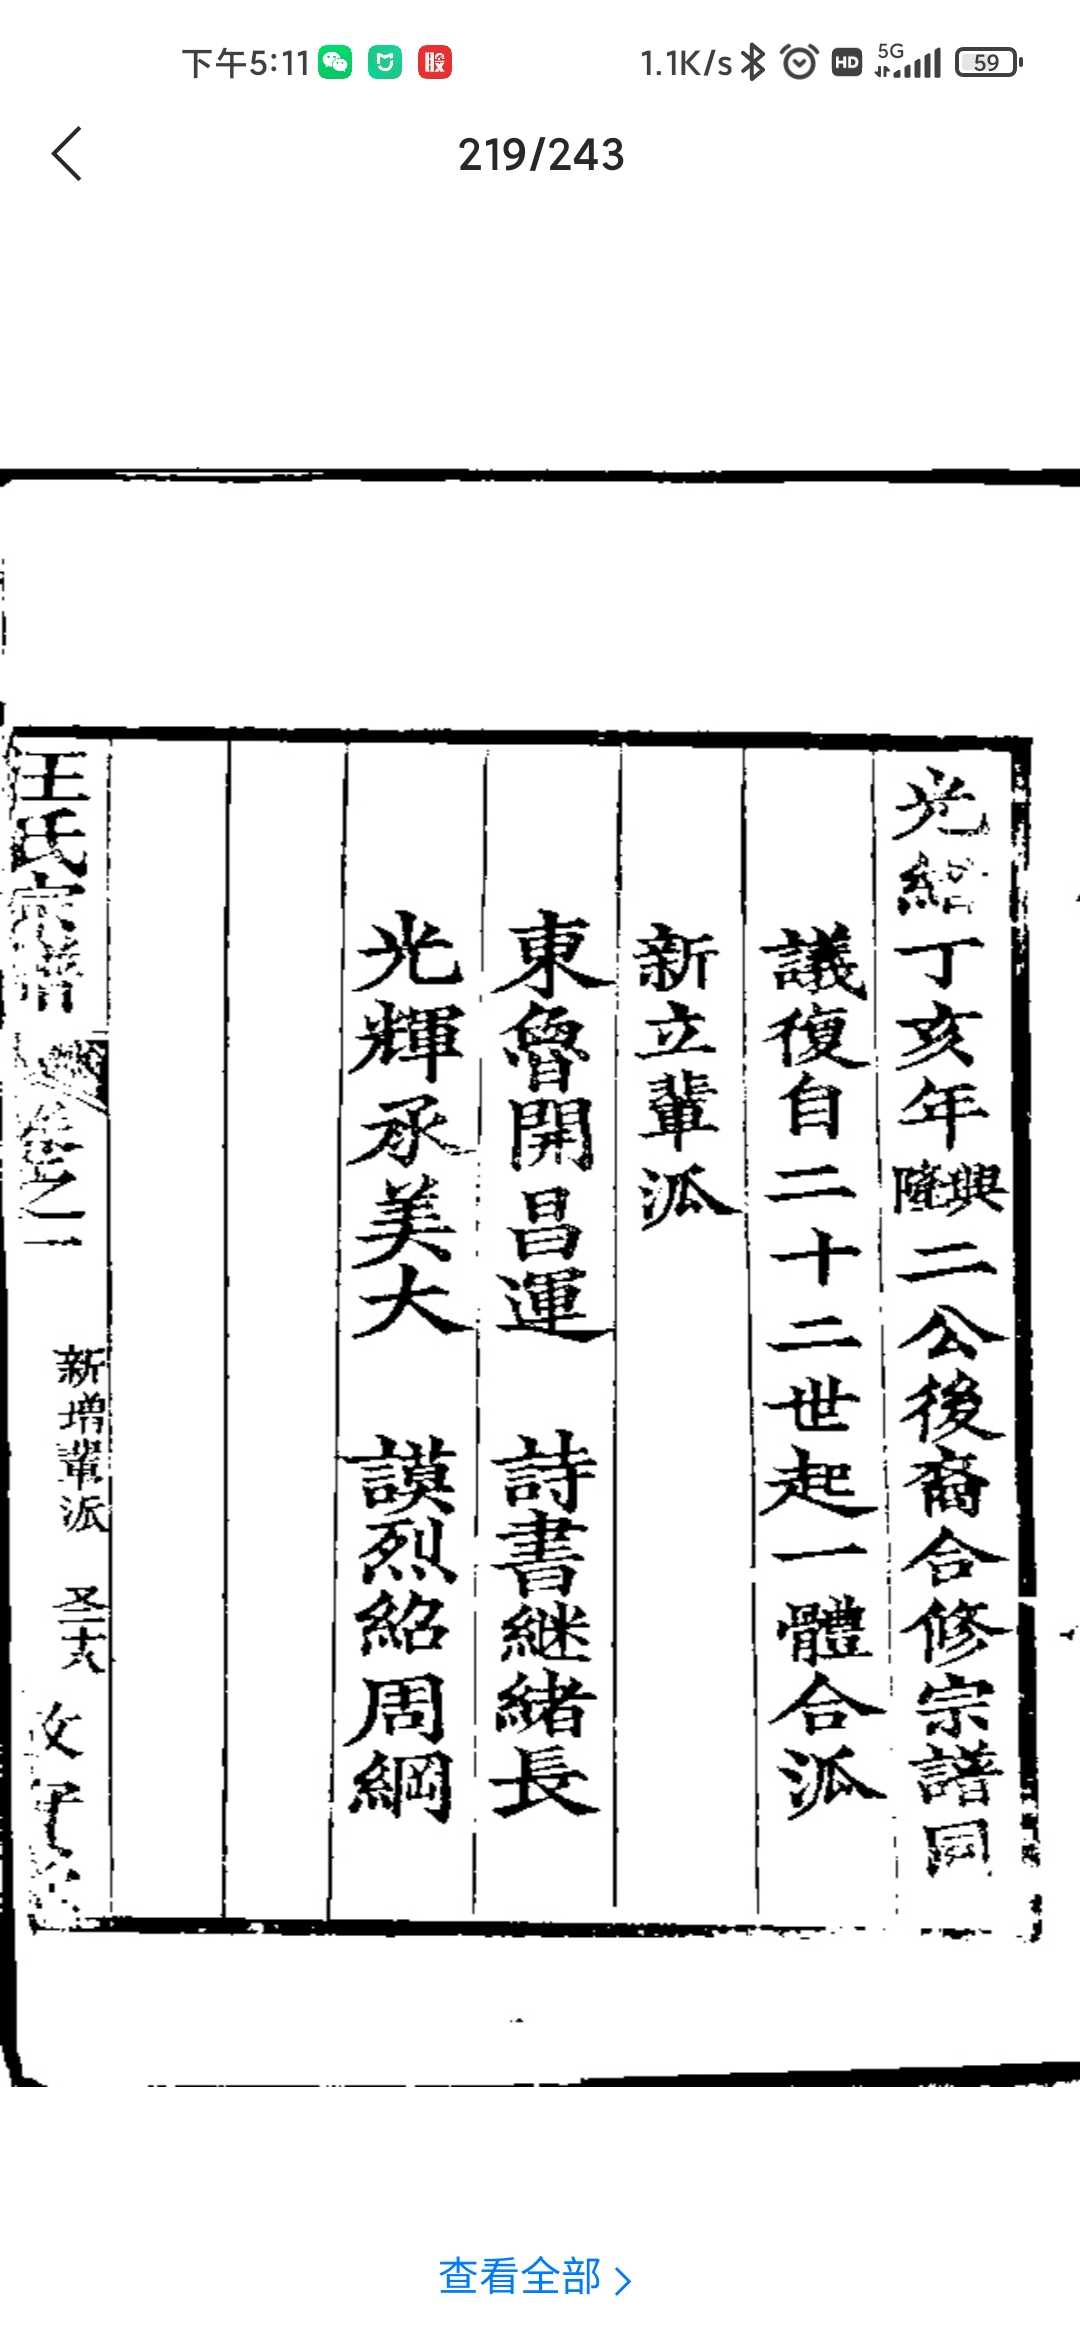 下午5:11 1.1K/s HD 5G 59
219/243
光緒丁亥年興隆二公後裔合修宗譜同
議復自二十二世起一體合派
新立輩派
東魯開昌運 詩書継緒長
光輝承美大 謨烈紹周綱
王氏宗譜 卷之二 新增輩派
查看全部